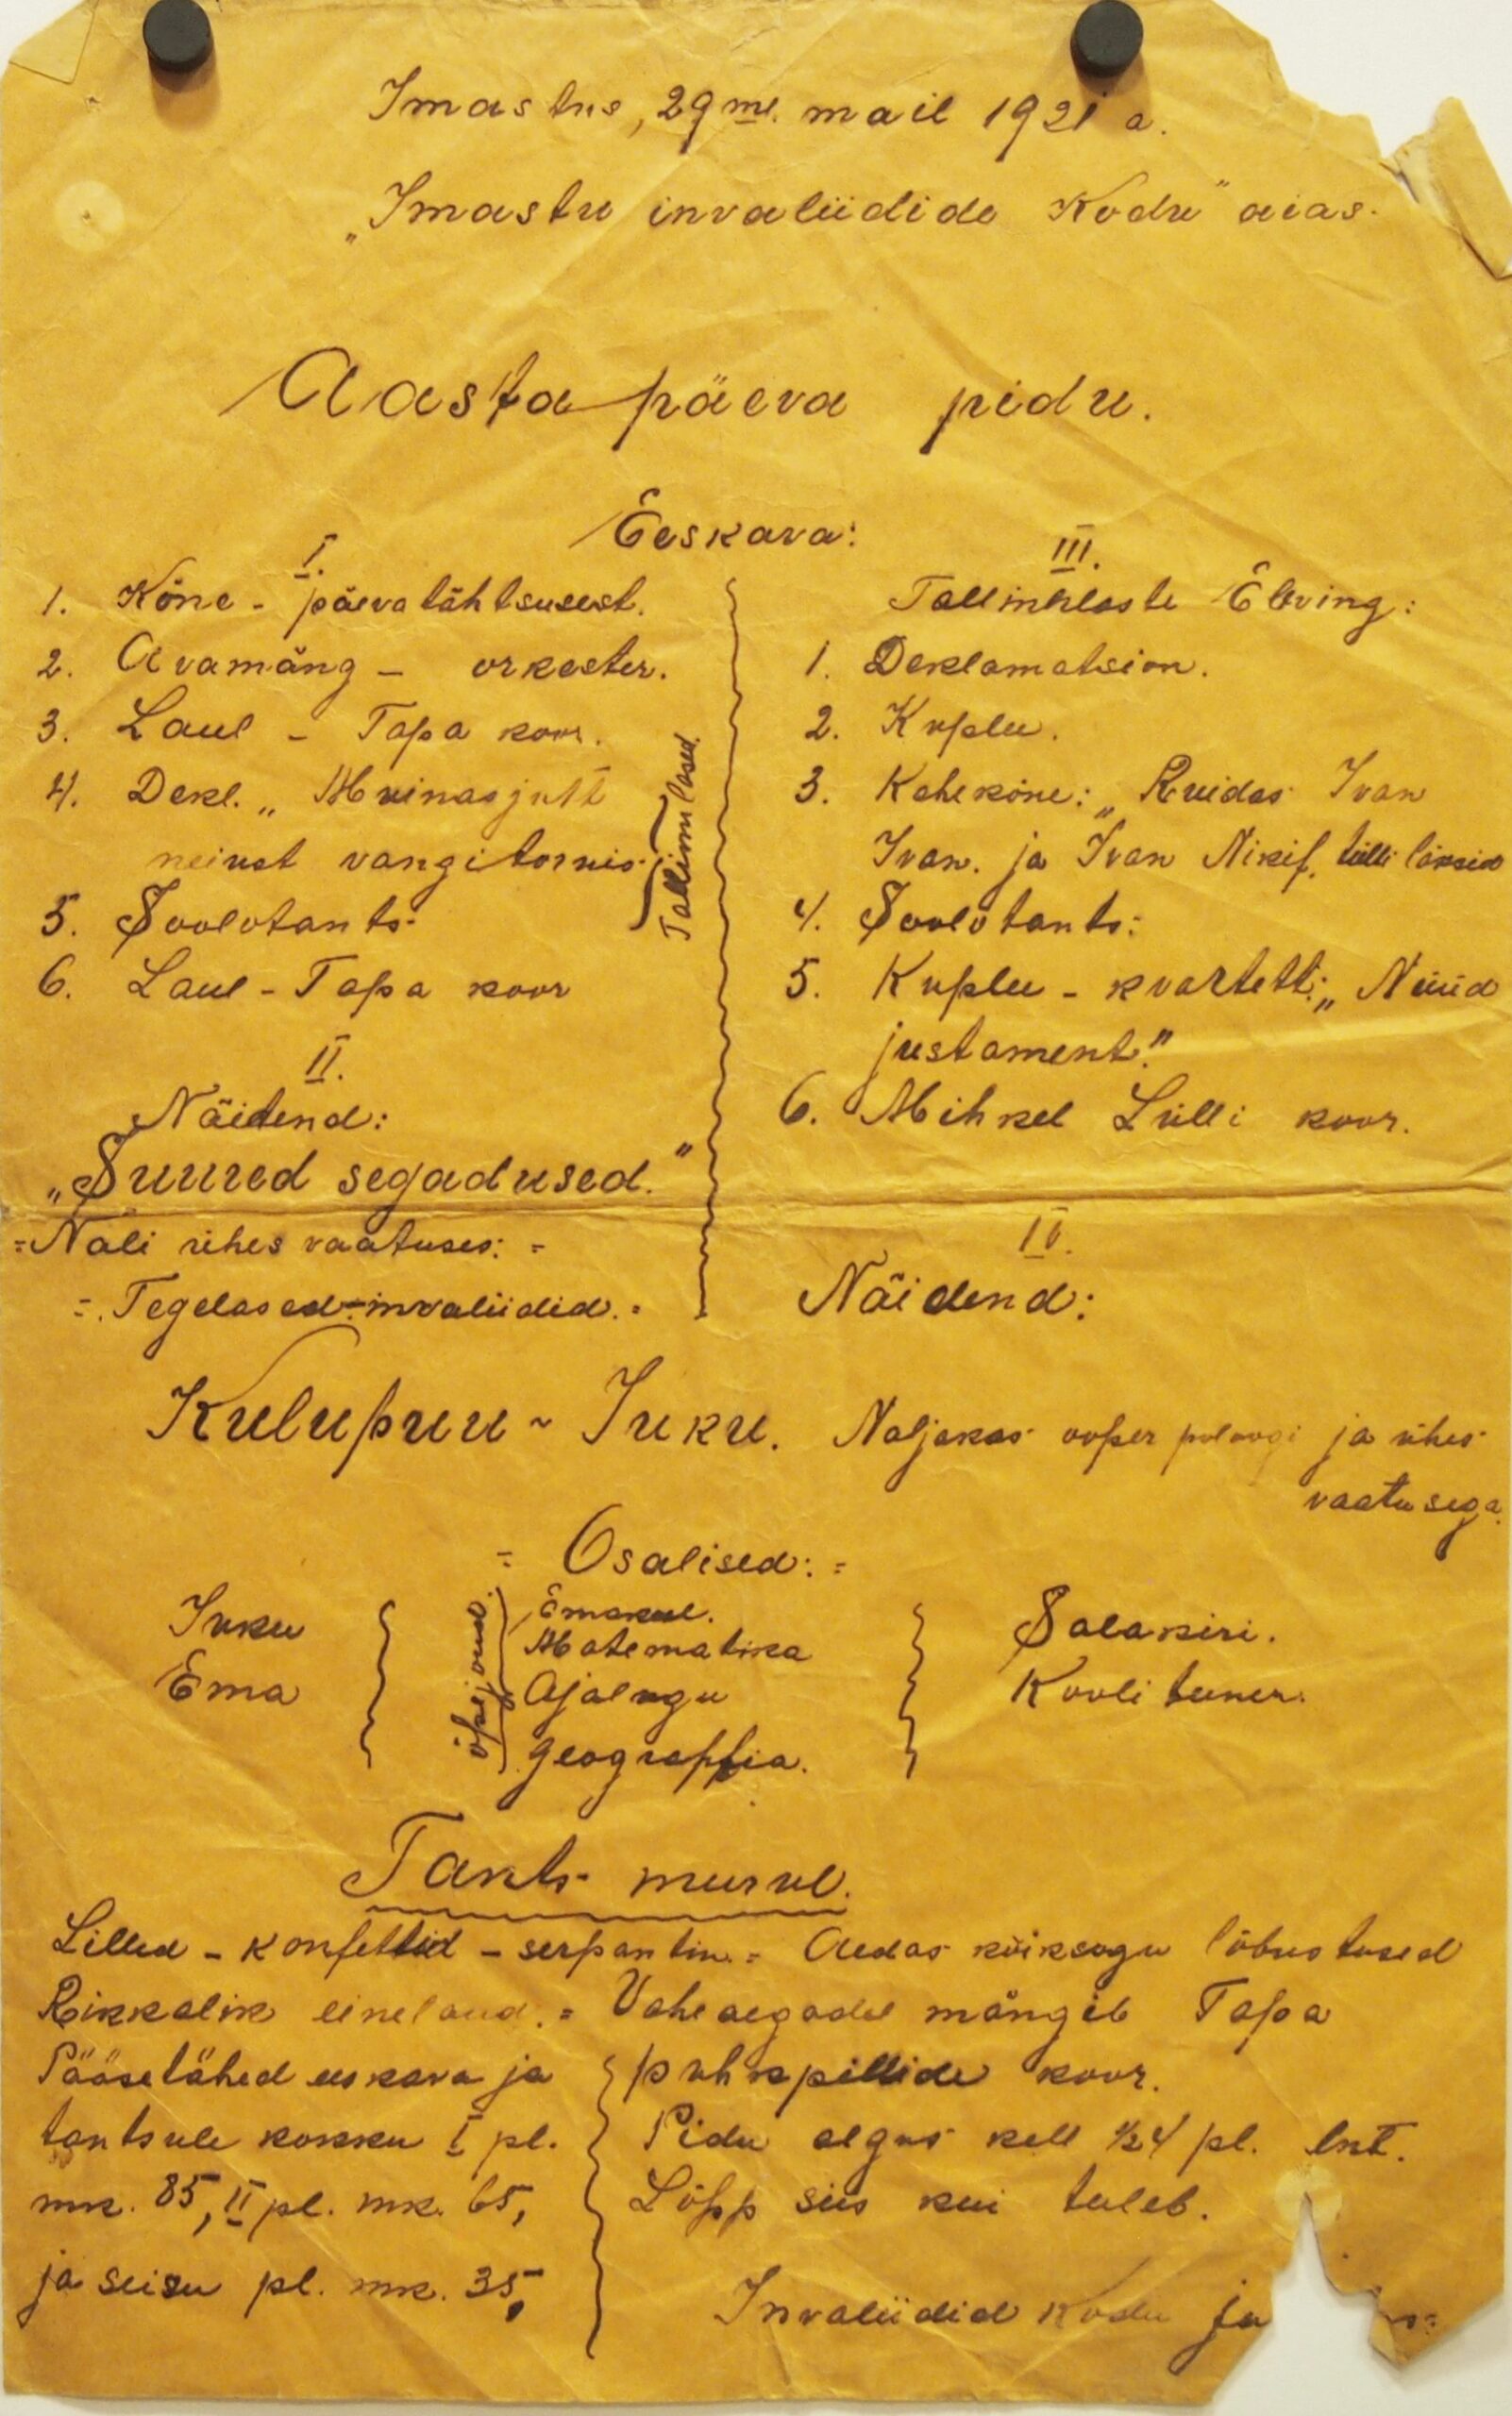 Imastus, 29 ml. mail 1921 a.
„Imastu invaliidide Kodu" aias.
Aastapäeva pidu.
Eeskava:
I.
1. Kõne - päeva tähtsusest.
2. Avamäng - orkester.
3. Laul - Tapa koor.
4. Dekl. „Muinasjutt
neiust vangitornis
5. Soolotants.
Tallinnlased.
6. Laul - Tapa koor
II.
Näitend:
„Suured segadused."
= Nali ühes vaatuses: =
= Tegelased = invaliidid. =
III.
Tallinnlaste Eeving:
1. Deklamatsion.
2. Kuplee.
3. Kahekõne: „Kuidas Ivan
Ivan. ja Ivan Nikif. tülli läksid
4. Soolotants:
5. Kuplee - kvartett: „Nüüd
justament."
6. Mihkel Lülli koor.
IV.
Näidend:
Kulupuu - Juku. Naljakas ooper proloogi ja ühes
vaatusega.
= Osalised: =
Juku
Ema
õpejõud.
Emakeel.
Matematika
Ajalugu
Geograffia.
Salakiri.
Kooli teener.
Tants murul.
Lilled - konfettid - serpantin. = Aedas kõiksugu lõbustused
Rikkalik einelaud. = Vaheaegadel mängib Tapa
puhkpillide koor.
Pääsetähed eeskava ja
tantsule kokku I pl.
mk. 85, II pl. mk. 65,
ja seisu pl. mk. 35,
Pidu algus kell ½4 pl. lnt.
Lõpp siis kui tuleb.
Invaliidid Kodu ja